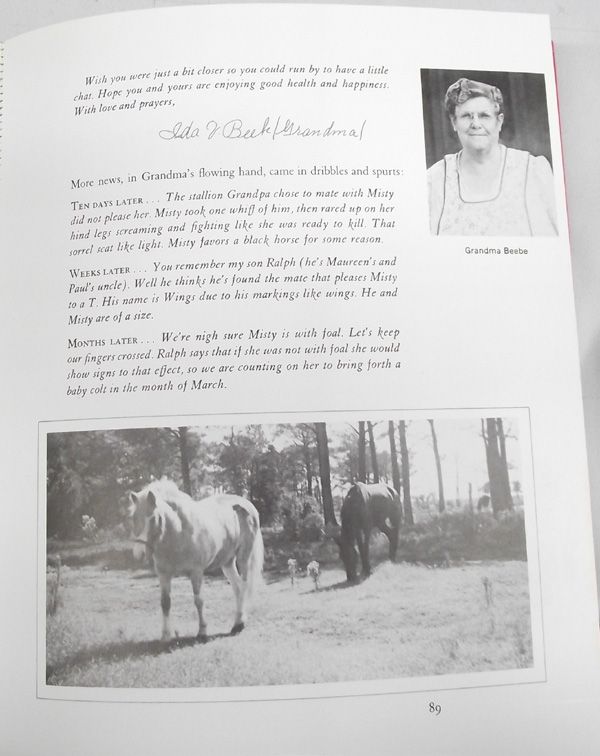 Wish you were just a bit closer so you could run by to have a little
chat. Hope you and yours are enjoying good health and happiness.
With love and prayers,
Ida V Beebe (Grandma)
Grandma Beebe
More news, in Grandma's flowing hand, came in dribbles and spurts:
TEN DAYS LATER . . . The stallion Grandpa chose to mate with Misty
did not please her. Misty took one whiff of him, then rared up on her
hind legs screaming and fighting like she was ready to kill. That
sorrel scat like light. Misty favors a black horse for some reason.
WEEKS LATER . . . You remember my son Ralph (he's Maureen's and
Paul's uncle). Well he thinks he's found the mate that pleases Misty
to a T. His name is Wings due to his markings like wings. He and
Misty are of a size.
MONTHS LATER . . . We're nigh sure Misty is with foal. Let's keep
our fingers crossed. Ralph says that if she was not with foal she would
show signs to that effect, so we are counting on her to bring forth a
baby colt in the month of March.
89